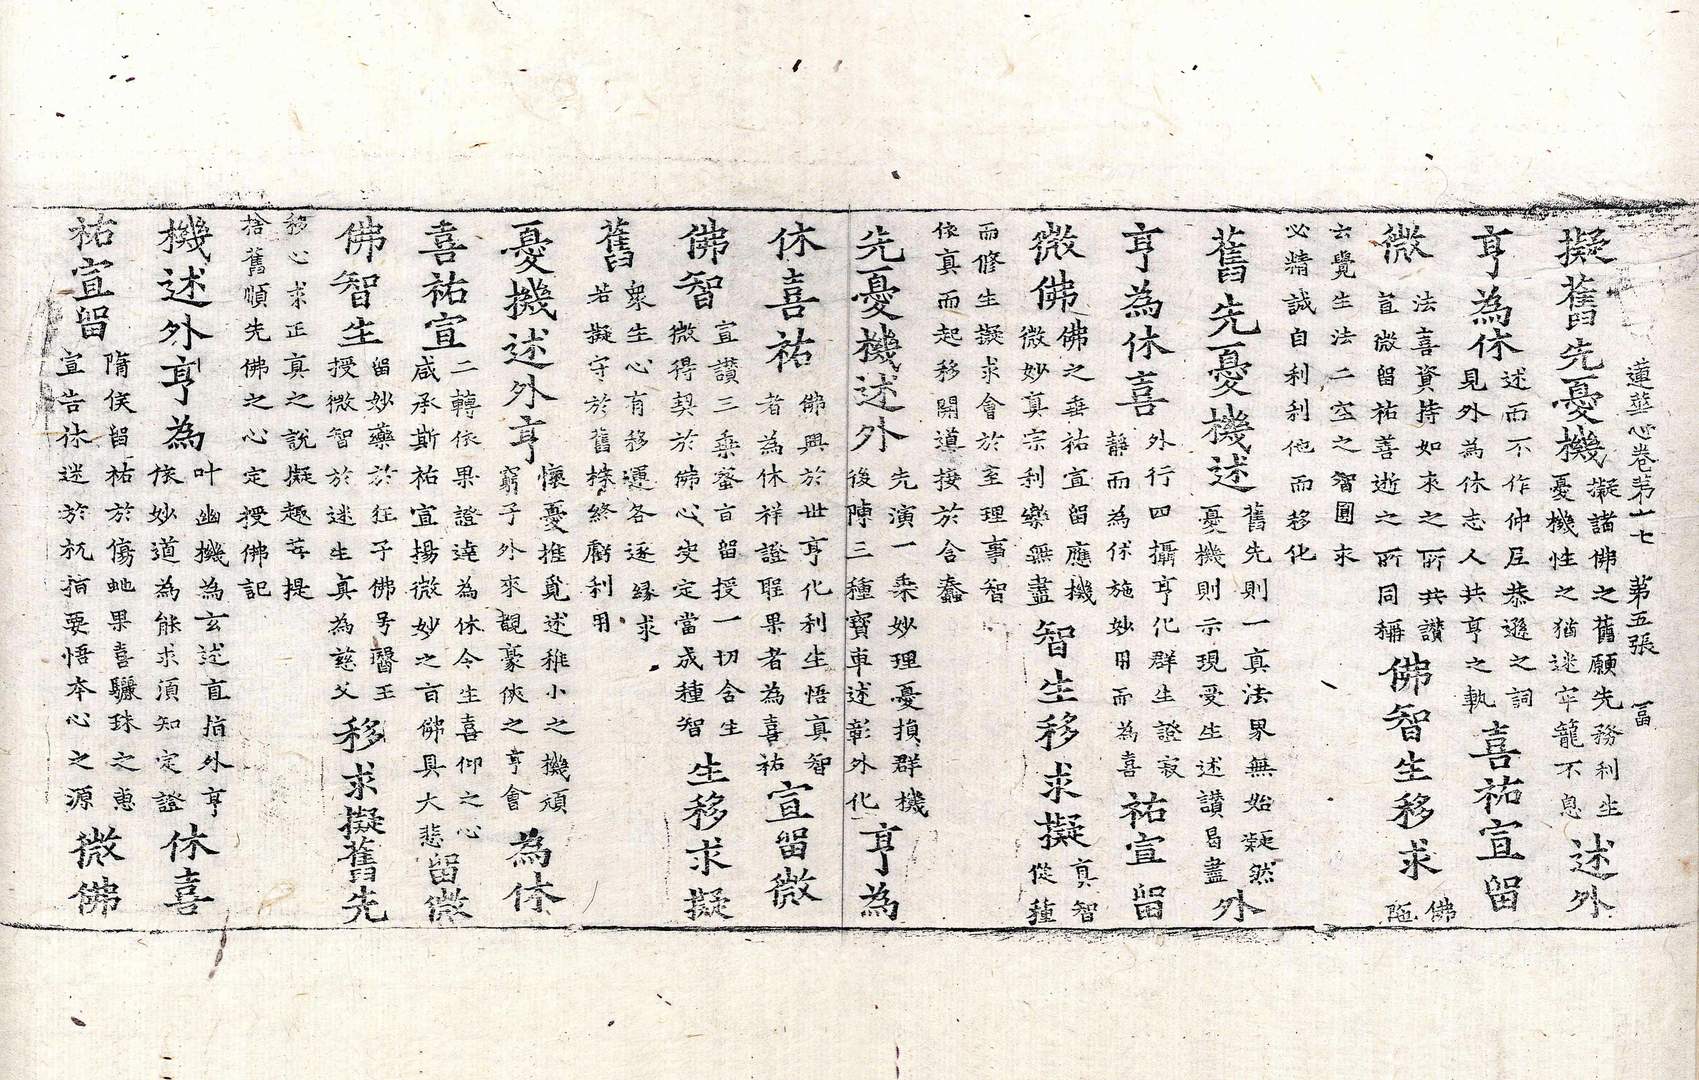 蓮華心卷第十七 第五張 冨
擬舊先憂機
擬諸佛之舊願先務利生
憂機性之猶迷牢籠不息
述外
亨為休
述而不作仲尼恭遜之詞
見外為休志人共亨之軌
喜祐宣留
微
法喜資持如來之所共讚
宣微留祐善逝之所同稱
佛智生移求
佛
陁
云覺生法二空之智圓求
必精誠自利利他而移化
舊先憂機述
舊先則一真法界無始凝然
憂機則示現受生述讚曷盡
外
亨為休喜
外行四攝亨化群生證寂
靜而為休施妙用而為喜
祐宣留
微佛
佛之垂祐宣留應機
微妙真宗利樂無盡
智生移求擬
真智
從種
而修生擬求會於至理事智
依真而起移開導接於含蠢
先憂機述外
先演一乘妙理憂損群機
後陳三種寶車述彰外化
亨為
休喜祐
佛興於世亨化利生悟真智
者為休祥證聖果者為喜祐
宣留微
佛智
宣讚三乘蜜言留授一切含生
微得契於佛心決定當成種智
生移求擬
舊
衆生心有移遷各逐緣求
若擬守於舊様終虧利用
憂機述外亨
懷憂推覓述稚小之機頑
窮子外來覩豪俠之亨會
為休
喜祐宣
二轉依果證逹為休令生喜仰之心
咸承斯祐宣揚微妙之言佛具大悲
留微
佛智生
留妙藥於狂子佛号醫王
授微智於迷生真為慈父
移求擬舊先
移心求正真之說擬趣菩提
捨舊順先佛之心定授佛記
機述外亨為
叶幽機為玄述直指外亨
依妙道為能求須知定證
休喜
祐宣留
隋侯留祐於傷虵果喜驪珠之惠
宣告休迷於杌指要悟本心之源
微佛